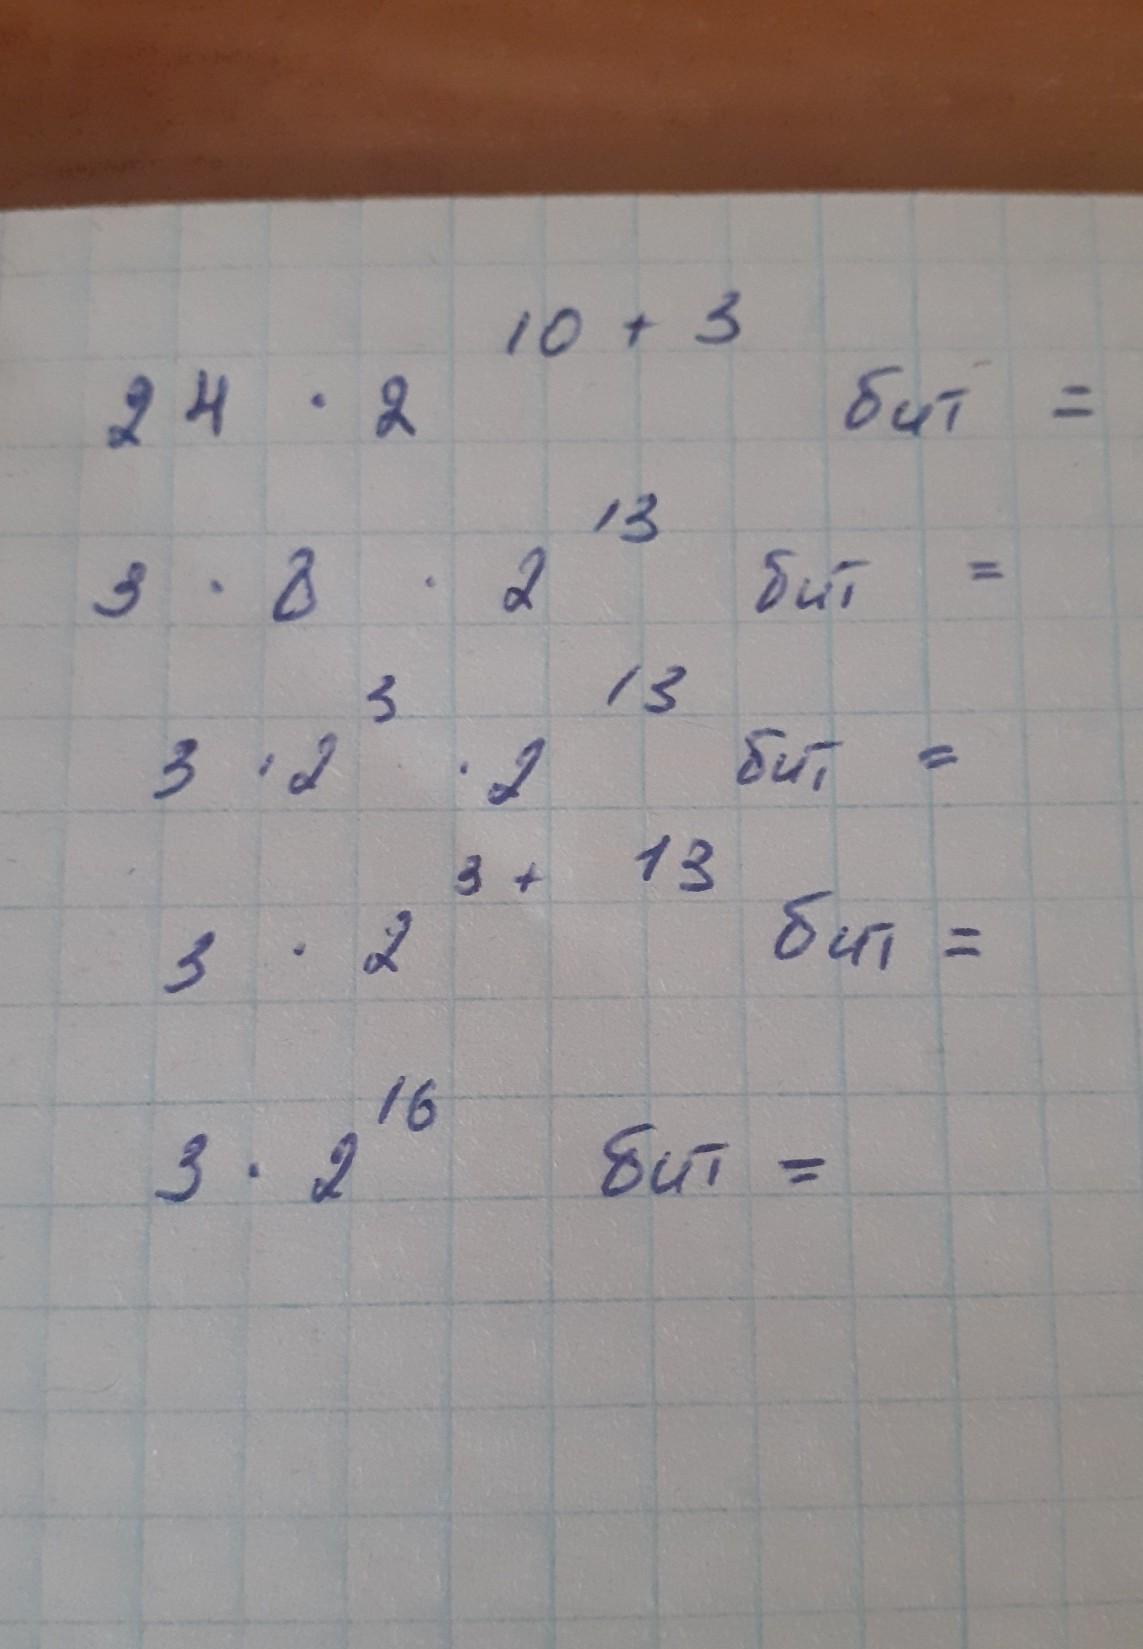 24 · 2^10 + 3 бит =
3 · 8 · 2^13 бит =
3 · 2^3 · 2^13 бит =
3 · 2^3 + 13 бит =
3 · 2^16 бит =